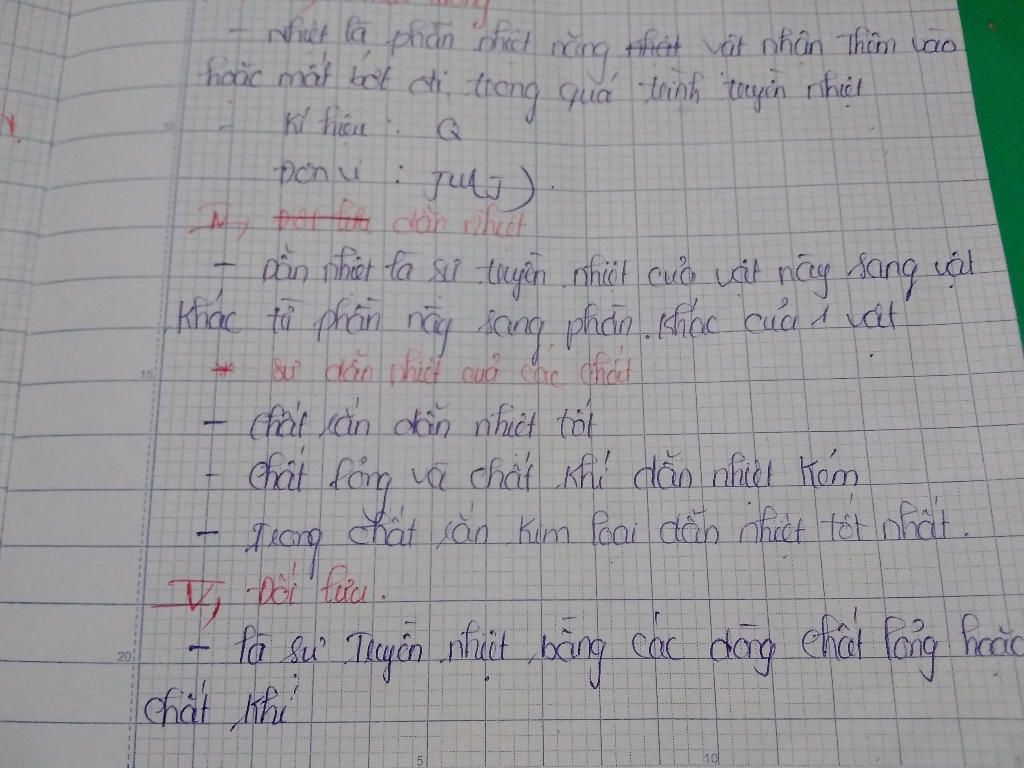 - nhiệt là phần nhiệt năng nhiệt vật nhận thêm vào
hoặc mất bớt đi trong quá trình truyền nhiệt
- Kí hiệu : Q
Đơn vị : Jul(J).
IV, dẫn nhiệt
- Dẫn nhiệt là sự truyền nhiệt của vật này sang vật
khác từ phần này sang phần khác của 1 vật
* Sự dẫn nhiệt của các chất
- Chất rắn dẫn nhiệt tốt
- Chất lỏng và chất khí dẫn nhiệt kém
- Trong chất rắn kim loại dẫn nhiệt tốt nhất.
V, Đối lưu.
- là sự Truyền nhiệt bằng các dòng chất lỏng hoặc
chất khí
20
5
10